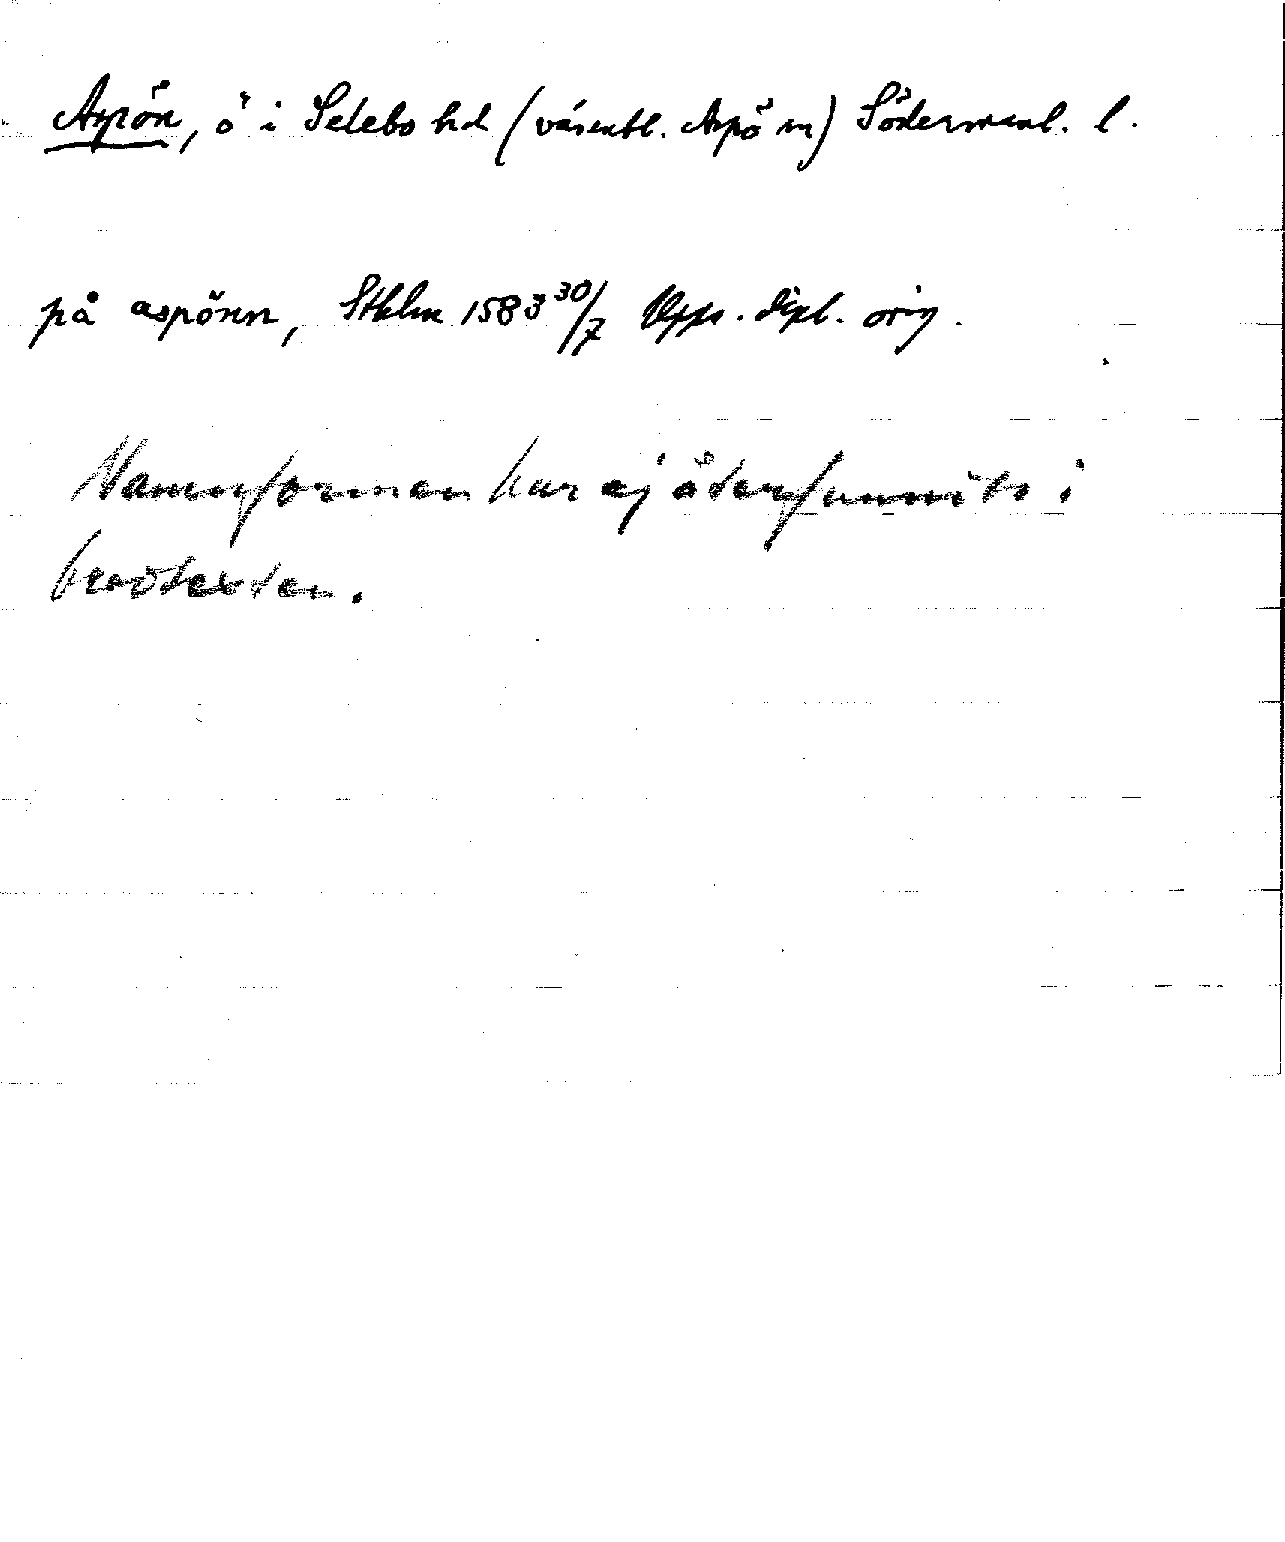 Aspön, ö i Selebo hd (väsentl. Aspö sn) Södermanl. l.
på aspönn, Sthlm 1583 30/7 Upps. dipl. orig.
Namnformen har ej återfunnits i
brevtexten.